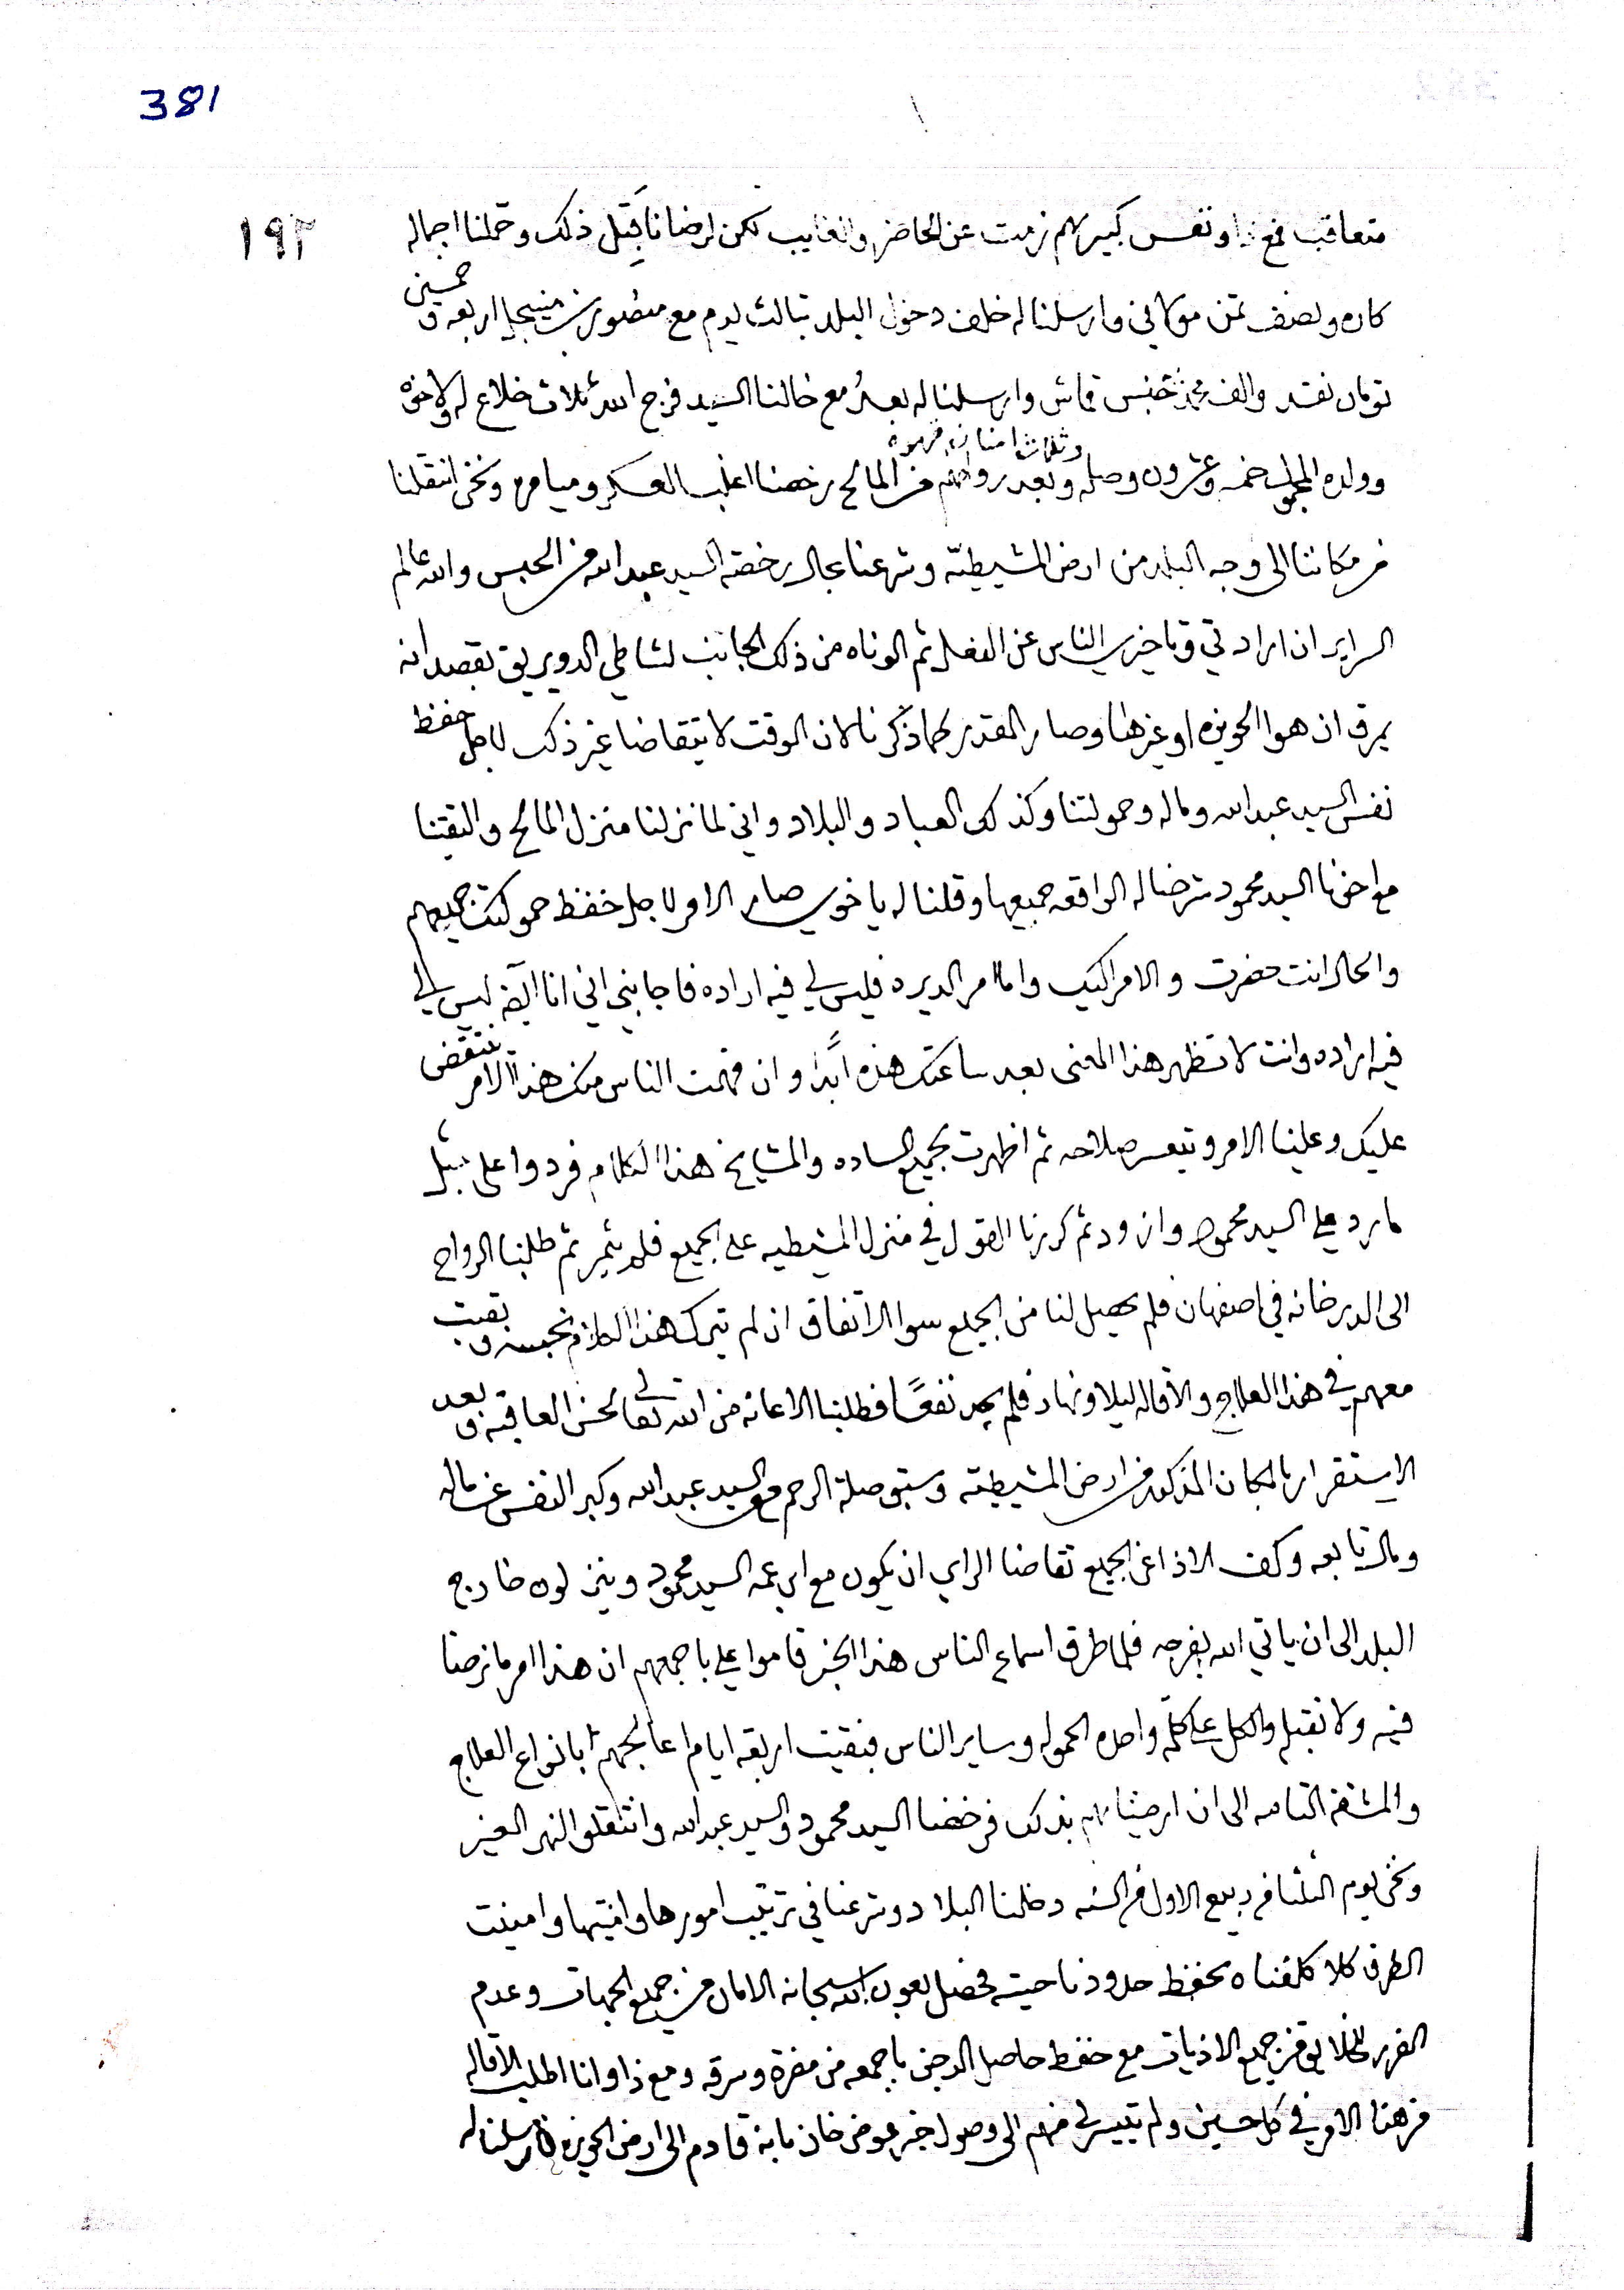 381
١٩٢
متعاقب فمع ذا ونفس كبيرهم زمت عن الحاضر والغايب لكن لرضانا قبل ذلك وحملنا اجماله
كاره ونصف تمن موكاني وارسلنا له خلف دخول البلد بثالث يوم مع منصور اربعه وخمسين
تومان نقد والف محمدي جنس قماش وارسلنا له بعد مع خالنا السيد فرج الله ثلاث خلاع له ولاخوه
وولده المجمل خمسه وعشرون وصله وثلاث امنان قهوه وبعد رواحهم من المالح رخصنا اغلب العسكر وميامره ونحن انتقلنا
من مكاننا الى وجه البلد من ارض المشيطيّه وشرعنا بحال رخصة السيد عبد الله من الحبس والله عالم
السراير ان ارادتي وتاخيري الناس عن الفعل ثم الوناه من ذلك الجانب لشاطي الدويريق بقصد انه
يمرق ان هوا الحويزه او غيرها وصار المقدر كما ذكرنا لان الوقت لا يتقاضا غير ذلك لاجل حفظ
نفس السيد عبد الله وماله وحمولتنا وكذلك العباد والبلاد واني لما نزلنا منزل المالح والتقينا
مع اخونا السيد محمود شرضا له الواقعه جميعها وقلنا له يا خوي صار الامر لاجل حفظ حمولتك جميعهم
والحال انت حضرت والامر اليك واما امر الديره فليس لي فيه اراده فاجابني اني انا ايضه ليس لي
فيه اراده وانت لا تظهر هذا المعنى بعد ساعتك هذه ابدًا وان فهمت الناس منك هذا الامر ينتقض
عليك وعلينا الامر ويتعسر صلاحه ثم اظهرت لجميع الساده والمشايخ هذا الكلام فردوا علي بمثل
ما رد علي السيد محمود وازود ثم كررنا القول في منزل المشيطيه على الجميع فلم يثمر ثم طلبنا الرواح
الى الديرخانه في اصفهان فلم يحصل لنا من الجميع سوا الاتفاق ان لم تترك هذا الكلام نحبسك وبقيت
معهم في هذا العلاج والاقاله ليلا ونهار فلم يجد نفعًا فطلبنا الاعانه من الله تعالى لحسن العاقبه وبعد
الاستقرار بالمكان المذكور من ارض المشيطيّه وسبق صلة الرحم مع السيد عبد الله وكبر النفس عن ماله
ومال تابعه وكف الاذا عن الجميع تقاضا الراي ان يكون مع ابن عمه السيد محمود وينزلون خارج
البلد الى ان ياتي الله بفرجه فلما طرق اسماع الناس هذا الخبر قاموا علي باجمعهم ان هذا امر ما نرضا
فيه ولا نقبله والكل على كلمة واحده الحموله وساير الناس فبقيت اربعه ايام اعالجهم بانواع العلاج
والمشقه التامه الى ان ارضيناهم بذلك فرخصنا السيد محمود والسيد عبد الله وانتقلو النهر
ونحن يوم الثلثا من ربيع الاول من السنه دخلنا البلاد وشرعنا في ترتيب امورها وامنيتها وامينت
الطرق كلا كلفناه بحفظ حدود ناحيته فحصل بعون الله سبحانه الامان من جميع الجهات وعدم
الضرر للخلايق من جميع الاذيات مع حفظ حاصل الدجن باجمعه من مضرة وسرقه ومع ذا وانا اطلب الاقاله
من هذا الامر في كل حسين ولم تتيسر لي منهم الى وصول خبر عوض خان بانه قادم الى ارض الحويزه فارسلنا له